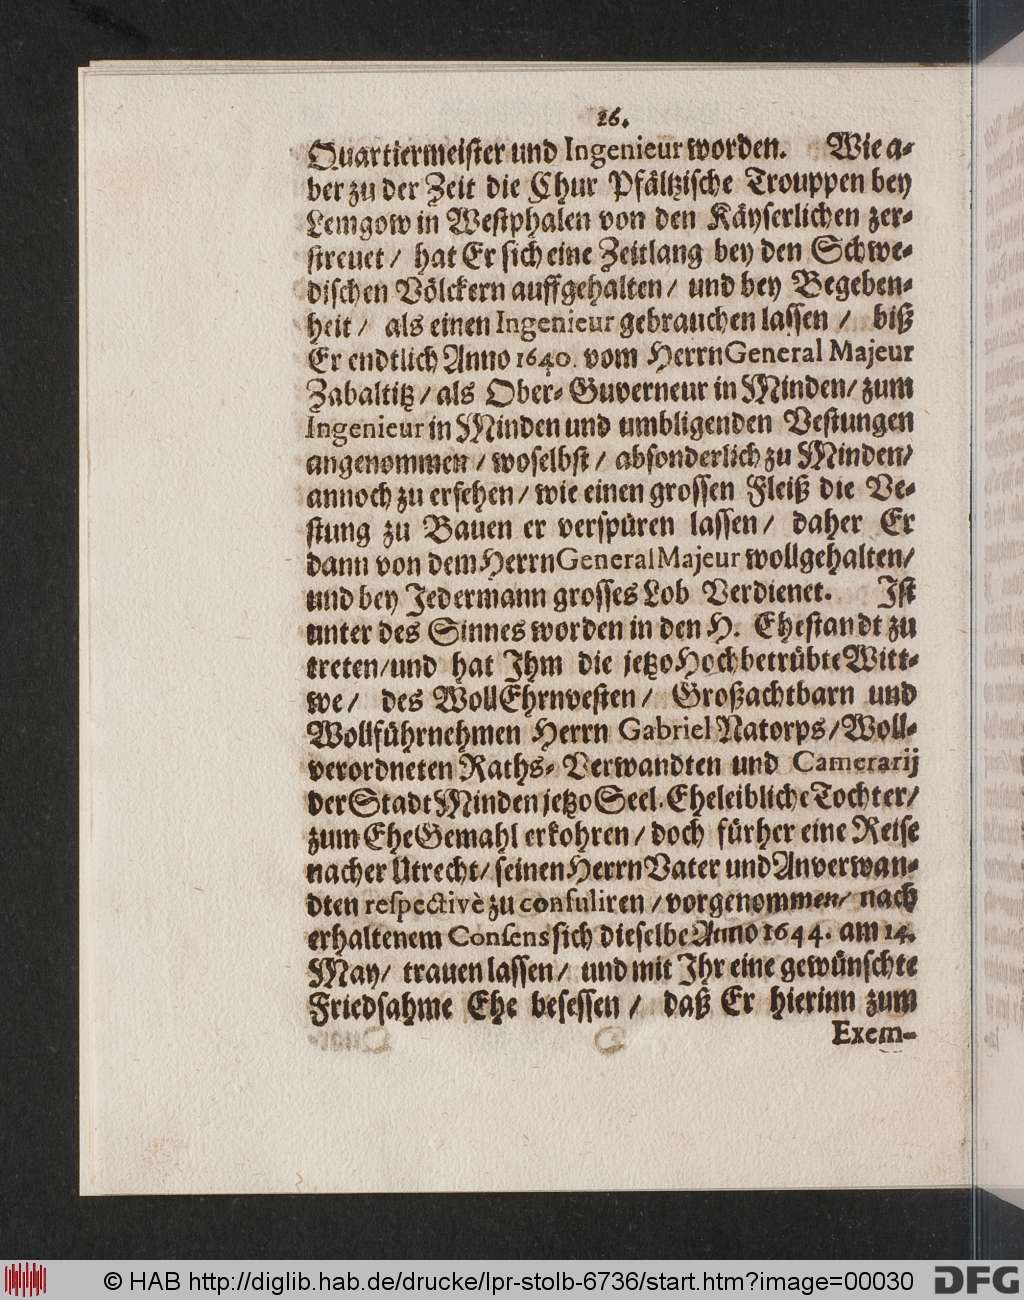 26.
Quartiermeister und Ingenieur worden. Wie a-
ber zu der Zeit die Chur Pfältzische Trouppen bey
Lemgow in Westphalen von den Käyserlichen zer-
streuet / hat Er sich eine Zeitlang bey den Schwe-
dischen Völckern auffgehalten / und bey Begeben-
heit / als einen Ingenieur gebrauchen lassen / biß
Er endtlich Anno 1640. vom Herrn General Majeur
Zabaltitz / als Ober-Guverneur in Minden / zum
Ingenieur in Minden und umbligenden Vestungen
angenommen / woselbst / absonderlich zu Minden /
annoch zu ersehen / wie einen grossen Fleiß die Ve-
stung zu Bauen er verspüren lassen / daher Er
dann von dem Herrn General Majeur wollgehalten /
und bey Jedermann grosses Lob Verdienet. Ist
unter des Sinnes worden in den H. Ehestandt zu
treten / und hat Ihm die jetzo Hochbetrübte Witt-
we / des WollEhrnvesten / Großachtbarn und
Wollführnehmen Herrn Gabriel Natorps / Woll-
verordneten Raths-Verwandten und Camerarij
der Stadt Minden jetzo Seel. Eheleibliche Tochter /
zum EheGemahl erkohren / doch fürher eine Reise
nacher Utrecht / seinen Herrn Vater und Anverwan-
dten respectivè zu consuliren / vorgenommen / nach
erhaltenem Consens sich dieselbe Anno 1644. am 14.
May / trauen lassen / und mit Ihr eine gewünschte
Friedsahme Ehe besessen / daß Er hierinn zum
Exem-
© HAB http://diglib.hab.de/drucke/lpr-stolb-6736/start.htm?image=00030
DFG